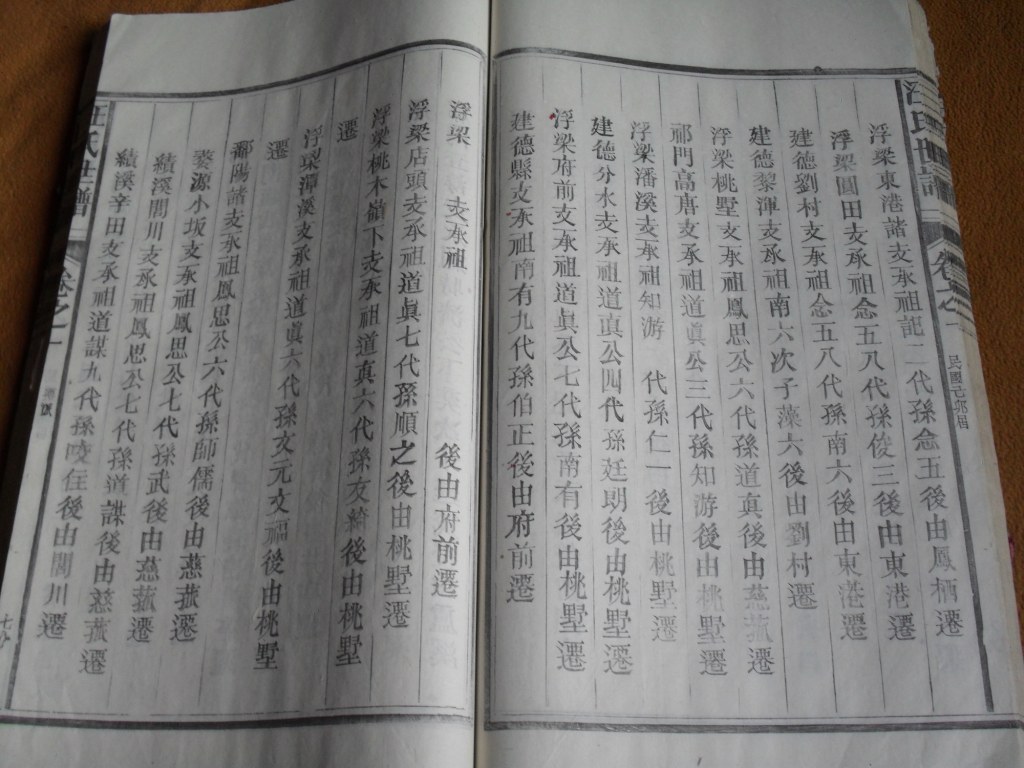 汪氏世譜
卷之一
民國己卯届
浮梁東港諸支承祖記二代孫念五後由鳳栖遷
浮梁圓田支承祖念五八代孫俊三後由東港遷
建德劉村支承祖念五八代孫南六後由東港遷
建德黎渾支承祖南六次子藻六後由劉村遷
浮梁桃墅支承祖鳳思公六代孫道真後由慈菰遷
祁門高唐支承祖道眞公三代孫知游後由桃墅遷
浮梁潘溪支承祖知游 代孫仁一後由桃墅遷
建德分水支承祖道眞公四代孫廷朗後由桃墅遷
浮梁府前支承祖道眞公七代孫南有後由桃墅遷
建德縣支承祖南有九代孫伯正後由府前遷
浮梁 支承祖 後由府前遷
浮梁店頭支承祖道眞七代孫順之後由桃墅遷
浮梁桃木嶺下支承祖道真六代孫友 後由桃墅
遷
浮梁潭溪支承祖道眞六代孫文元文福後由桃墅
遷
鄱陽諸支承祖鳳思公六代孫師儒後由慈菰遷
婺源小坂支承祖鳳思公七代孫武後由慈菰遷
績溪閏川支承祖鳳思公七代孫道謀後由慈菰遷
績溪辛田支承祖道謀九代孫 後由閏川遷
汪氏世譜
卷之一